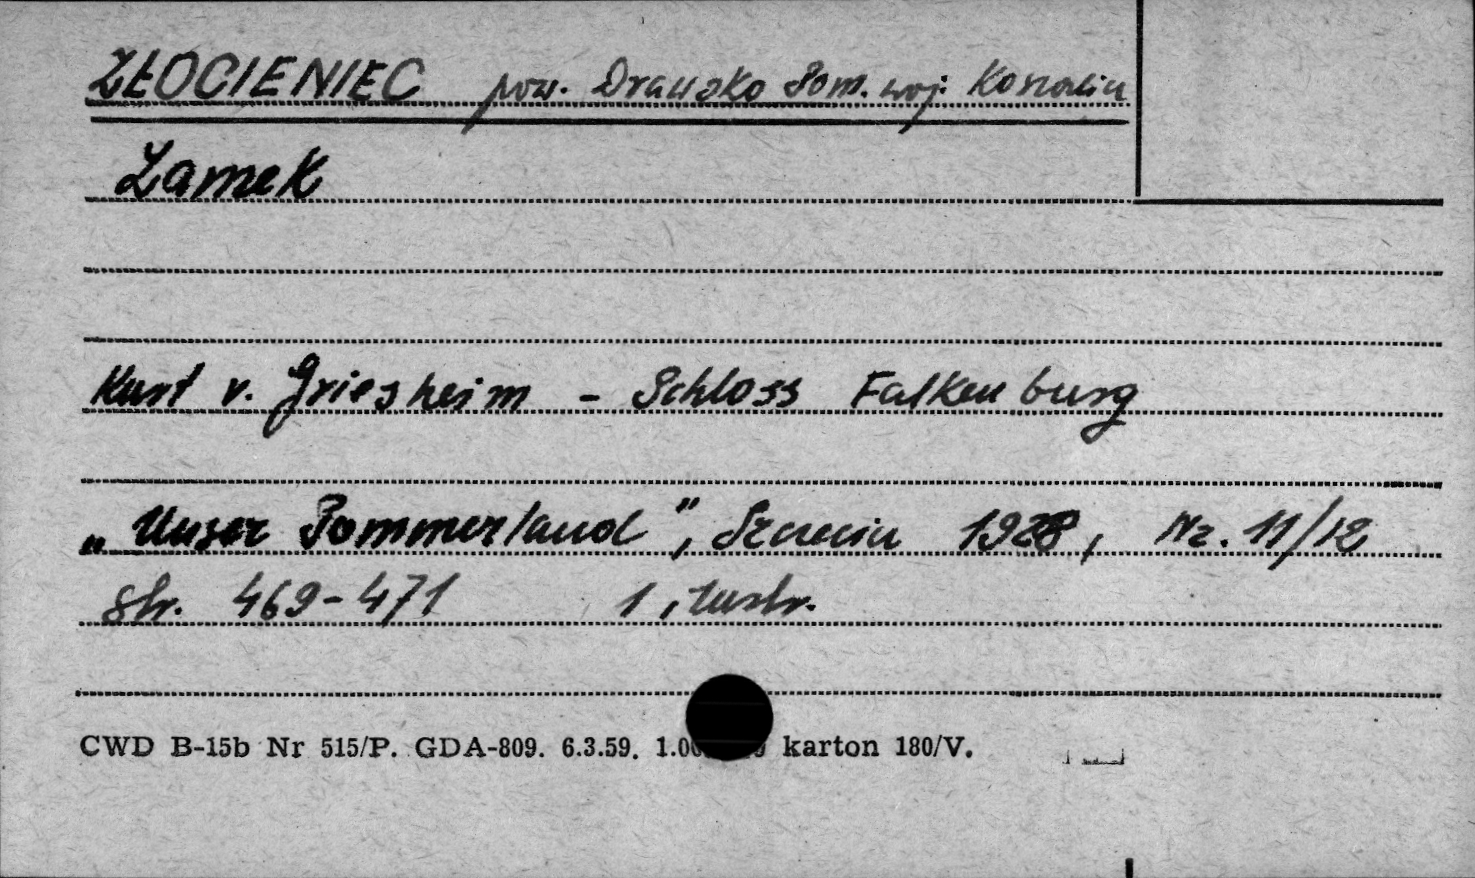 ZŁOCIENIEC pow. Drawsko Pom. woj. Koszalin
Zamek
Kurt v. Griesheim - Schloss Falkenburg
„Unser Pommerland", Szczecin 1928, Nr. 11/12
str. 469-471 1 ilustr.
CWD B-15b Nr 515/P. GDA-809. 6.3.59. karton 180/V.